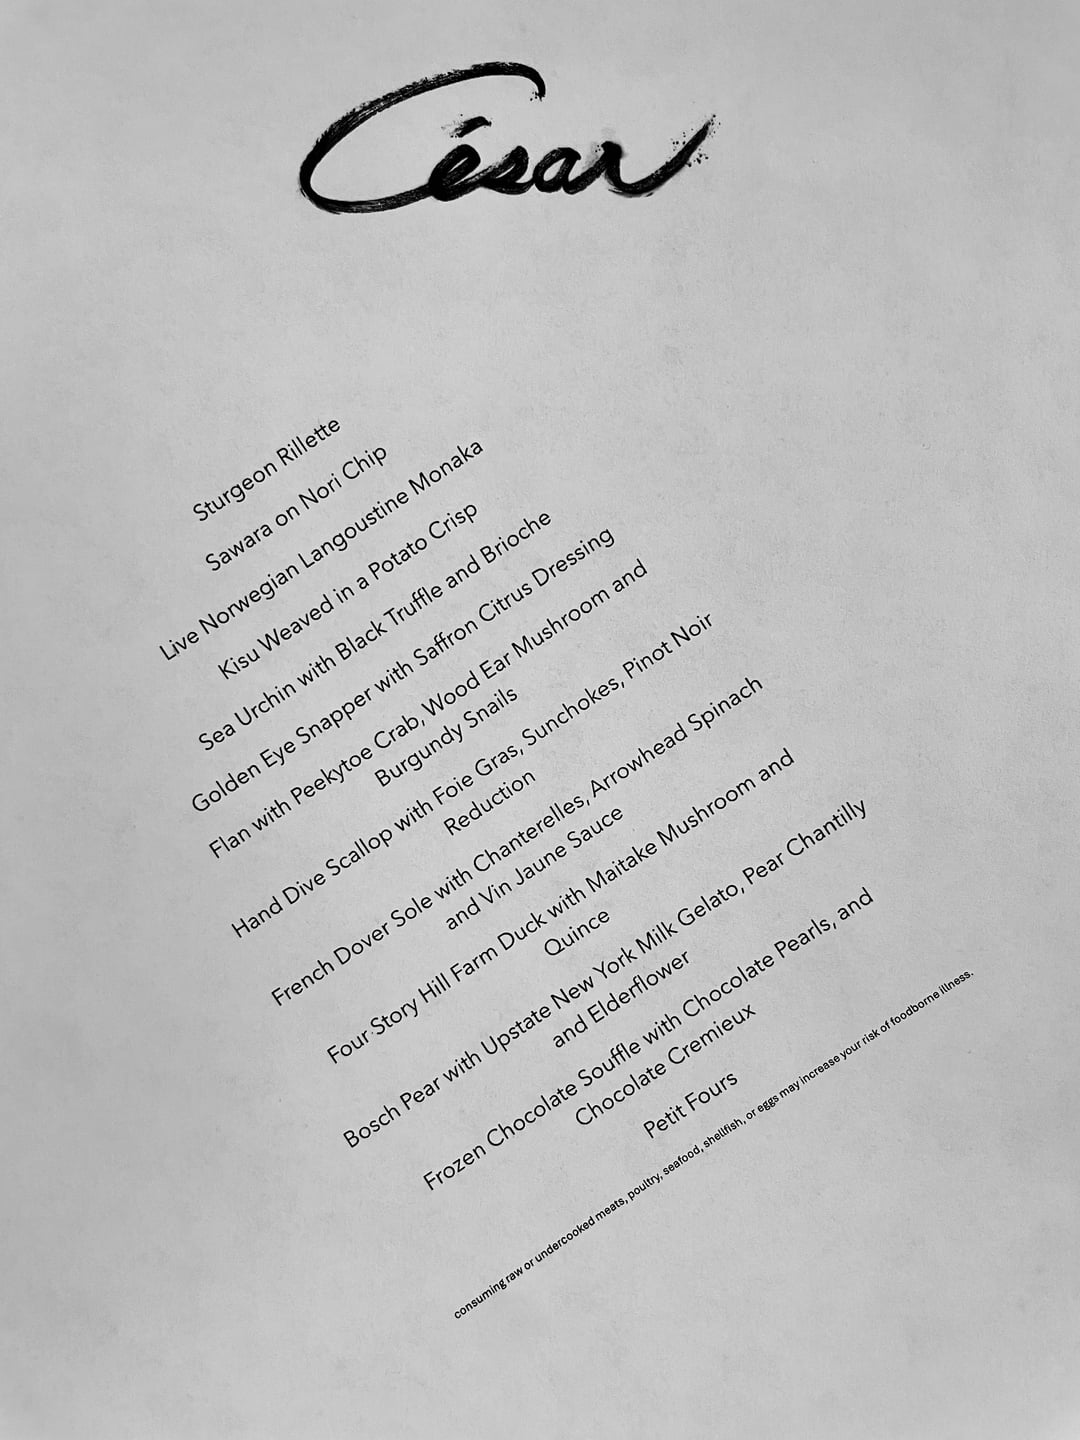 César
Sturgeon Rillette
Sawara on Nori Chip
Live Norwegian Langoustine Monaka
Kisu Weaved in a Potato Crisp
Sea Urchin with Black Truffle and Brioche
Golden Eye Snapper with Saffron Citrus Dressing
Flan with Peekytoe Crab, Wood Ear Mushroom and
Burgundy Snails
Hand Dive Scallop with Foie Gras, Sunchokes, Pinot Noir
Reduction
French Dover Sole with Chanterelles, Arrowhead Spinach
and Vin Jaune Sauce
Four Story Hill Farm Duck with Maitake Mushroom and
Quince
Bosch Pear with Upstate New York Milk Gelato, Pear Chantilly
and Elderflower
Frozen Chocolate Souffle with Chocolate Pearls, and
Chocolate Cremieux
Petit Fours
consuming raw or undercooked meats, poultry, seafood, shellfish, or eggs may increase your risk of foodborne illness.